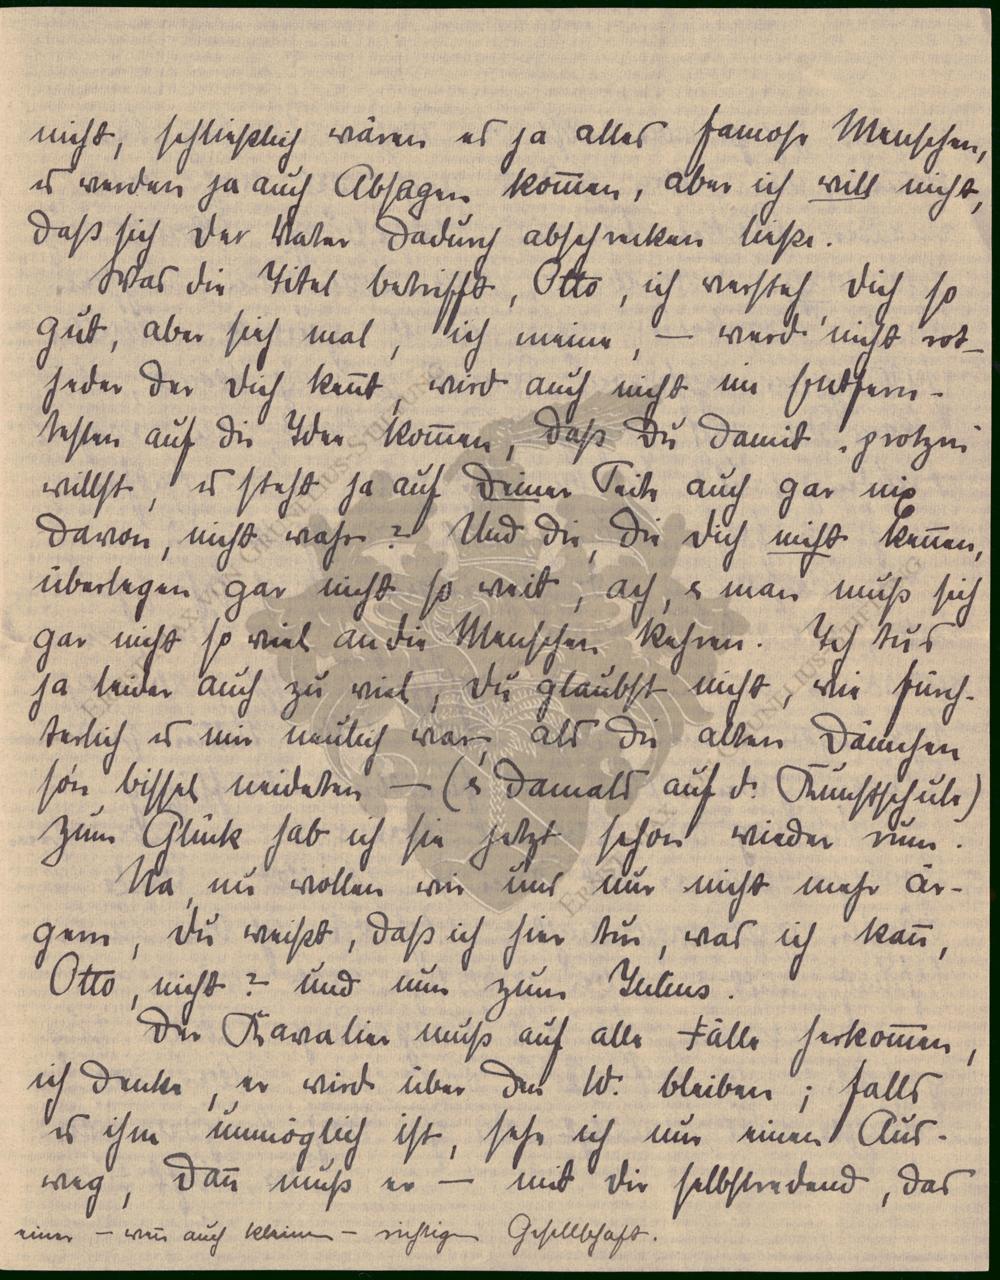 nicht, schließlich wären es ja alles famose Menschen,
es werden ja auch Absagen kom̄en, aber ich will nicht,
daß sich der Vater dadurch abschrecken ließe.
Was die Titel betrifft, Otto, ich versteh Dich so
gut, aber sieh mal, ich meine, — werd nicht rot —
jeder der Dich ken̄t, wird auch nicht im Entfern-
testen auf die Idee kom̄en, daß Du damit „protzen“
willst, es steht ja auf Deiner Seite auch gar nix
davon, nicht wahr? Und die, die Dich nicht ken̄en,
überlegen gar nicht so weit, ach, & man muß sich
gar nicht so viel an die Menschen kehren. Ich tu's
ja leider auch zu viel, Du glaubst nicht, wie fürch-
terlich es mir neulich war, als die alten Dämchen
so'n bissel neideten — (& damals auf d. Kunstschule)
zum Glück hab ich sie jetzt schon wieder rum.
Na, nu wollen wir uns nur nicht mehr är-
gern, Du weißt, daß ich hier tu, was ich kan̄,
Otto, nicht? und nun zum Julius.
Der Kavalier muß auf alle Fälle herkom̄en,
ich denke, er wird über den 10. bleiben; falls
es ihm unmöglich ist, sehe ich nur einen Aus-
weg, dan̄ muß er — mit Dir selbstredend, das
einer — wen̄ auch kleinen — richtigen Gesellschaft.